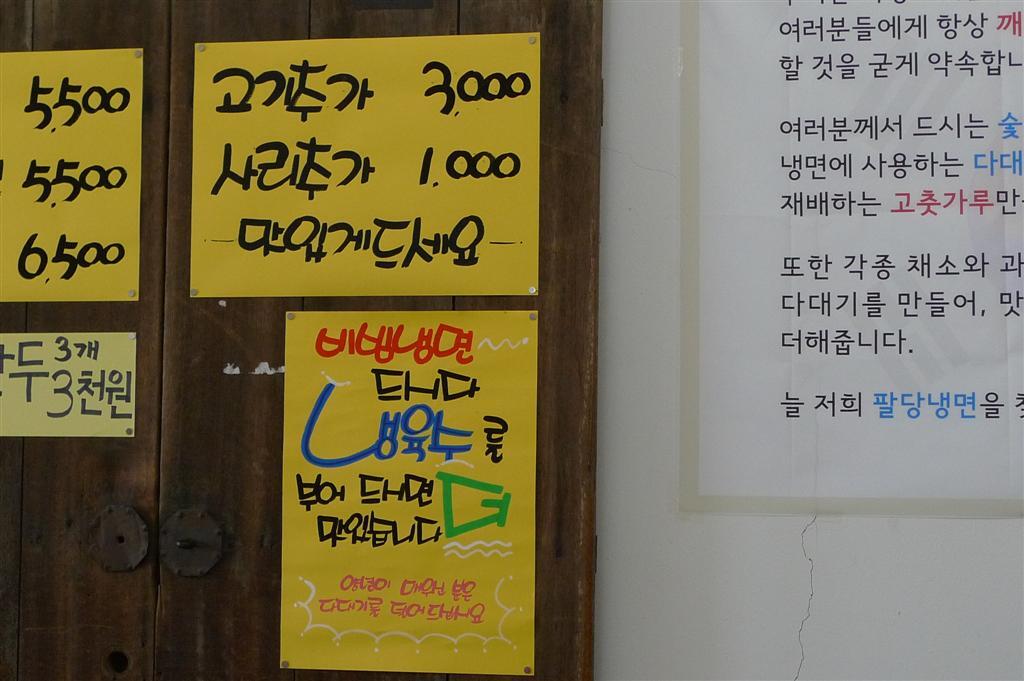 5,500
5,500
6,500
3개
두 3천원
고기추가 3,000
사리추가 1,000
맛있게드세요
비빔냉면
드시다
냉육수를
부어 드시면 더
맛있습니다
양념이 매우신 분은
다대기를 덜어드십시요
여러분들에게 항상 깨
할 것을 굳게 약속합니
여러분께서 드시는 숯
냉면에 사용하는 다대
재배하는 고춧가루만
또한 각종 채소와 과
다대기를 만들어, 맛
더해줍니다.
늘 저희 팔당냉면을